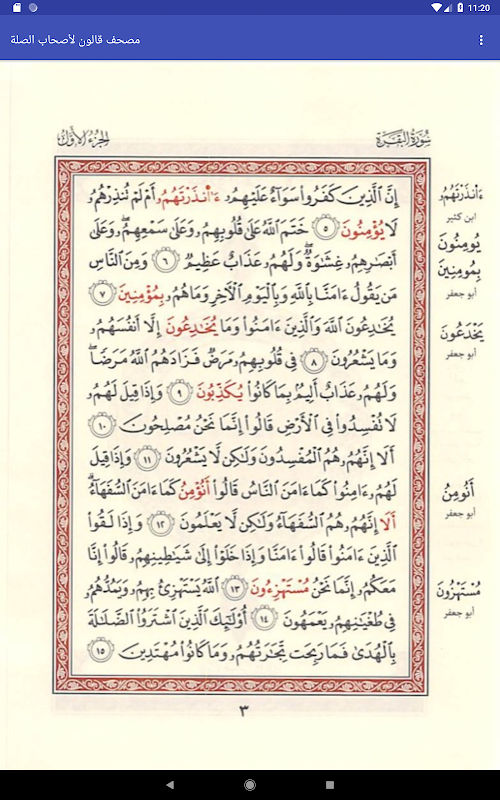 11:20
مصحف قالون لأصحاب الصلة
سُورَةُ البَقَرَة
الجُزءُ الأوَّل
إِنَّ الَّذِينَ كَفَرُوا سَوَاءٌ عَلَيْهِمُۥ ءَا۬نذَرْتَهُمُۥ أَمْ لَمْ تُنذِرْهُمُۥ
لَا يُؤْمِنُونَ ٥ خَتَمَ اللَّهُ عَلَىٰ قُلُوبِهِمُۥ وَعَلَىٰ سَمْعِهِمُۥ وَعَلَىٰ
أَبْصَٰرِهِمُۥ غِشَٰوَةٌ وَلَهُمُۥ عَذَابٌ عَظِيمٌ ٦ وَمِنَ النَّاسِ
مَن يَقُولُ ءَامَنَّا بِاللَّهِ وَبِالْيَوْمِ الْأَخِرِ وَمَا هُمُۥ بِمُؤْمِنِينَ ٧
يُخَٰدِعُونَ اللَّهَ وَالَّذِينَ ءَامَنُوا وَمَا يُخَٰدِعُونَ إِلَّا أَنفُسَهُمُۥ
وَمَا يَشْعُرُونَ ٨ فِي قُلُوبِهِمُۥ مَرَضٌ فَزَادَهُمُ اللَّهُ مَرَضًا
وَلَهُمُۥ عَذَابٌ أَلِيمٌ بِمَا كَانُوا يُكَذِّبُونَ ٩ وَإِذَا قِيلَ لَهُمُۥ
لَا تُفْسِدُوا فِي الْأَرْضِ قَالُوا إِنَّمَا نَحْنُ مُصْلِحُونَ ١٠
أَلَا إِنَّهُمُۥ هُمُ الْمُفْسِدُونَ وَلَٰكِن لَّا يَشْعُرُونَ ١١ وَإِذَا قِيلَ
لَهُمُۥ ءَامِنُوا كَمَا ءَامَنَ النَّاسُ قَالُوا أَنُؤْمِنُ كَمَا ءَامَنَ السُّفَهَاءُ
أَلَا إِنَّهُمُۥ هُمُ السُّفَهَاءُ وَلَٰكِن لَّا يَعْلَمُونَ ١٢ وَإِذَا لَقُوا
الَّذِينَ ءَامَنُوا قَالُوا ءَامَنَّا وَإِذَا خَلَوْا إِلَىٰ شَيَٰطِينِهِمُۥ قَالُوا إِنَّا
مَعَكُمُۥ إِنَّمَا نَحْنُ مُسْتَهْزِءُونَ ١٣ اللَّهُ يَسْتَهْزِئُ بِهِمُۥ وَيَمُدُّهُمُۥ
فِي طُغْيَٰنِهِمُۥ يَعْمَهُونَ ١٤ أُوْلَٰئِكَ الَّذِينَ اشْتَرَوُا الضَّلَٰلَةَ
بِالْهُدَىٰ فَمَا رَبِحَت تِّجَٰرَتُهُمُۥ وَمَا كَانُوا مُهْتَدِينَ ١٥
ءَاَنذَرْتَهُمُۥ
ابن كثير
يُومِنُونَ
بِمُومِنِينَ
أبو جعفر
يَخْدَعُونَ
أبو جعفر
أَنُومِنُ
أبو جعفر
مُسْتَهْزُونَ
أبو جعفر
٣